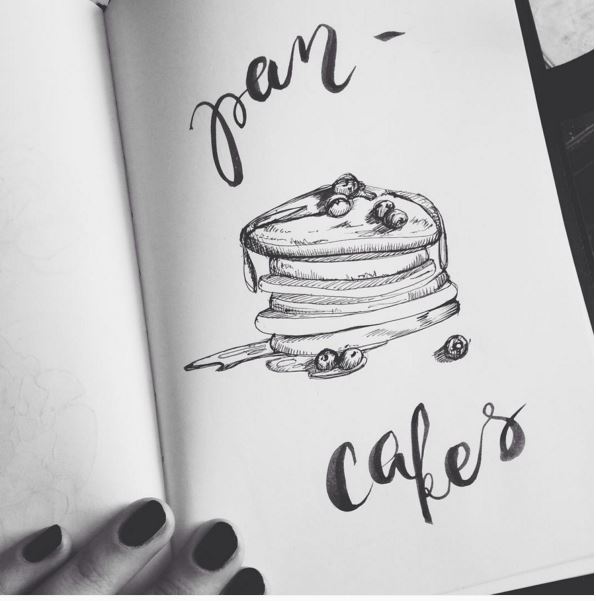 pan-
cakes